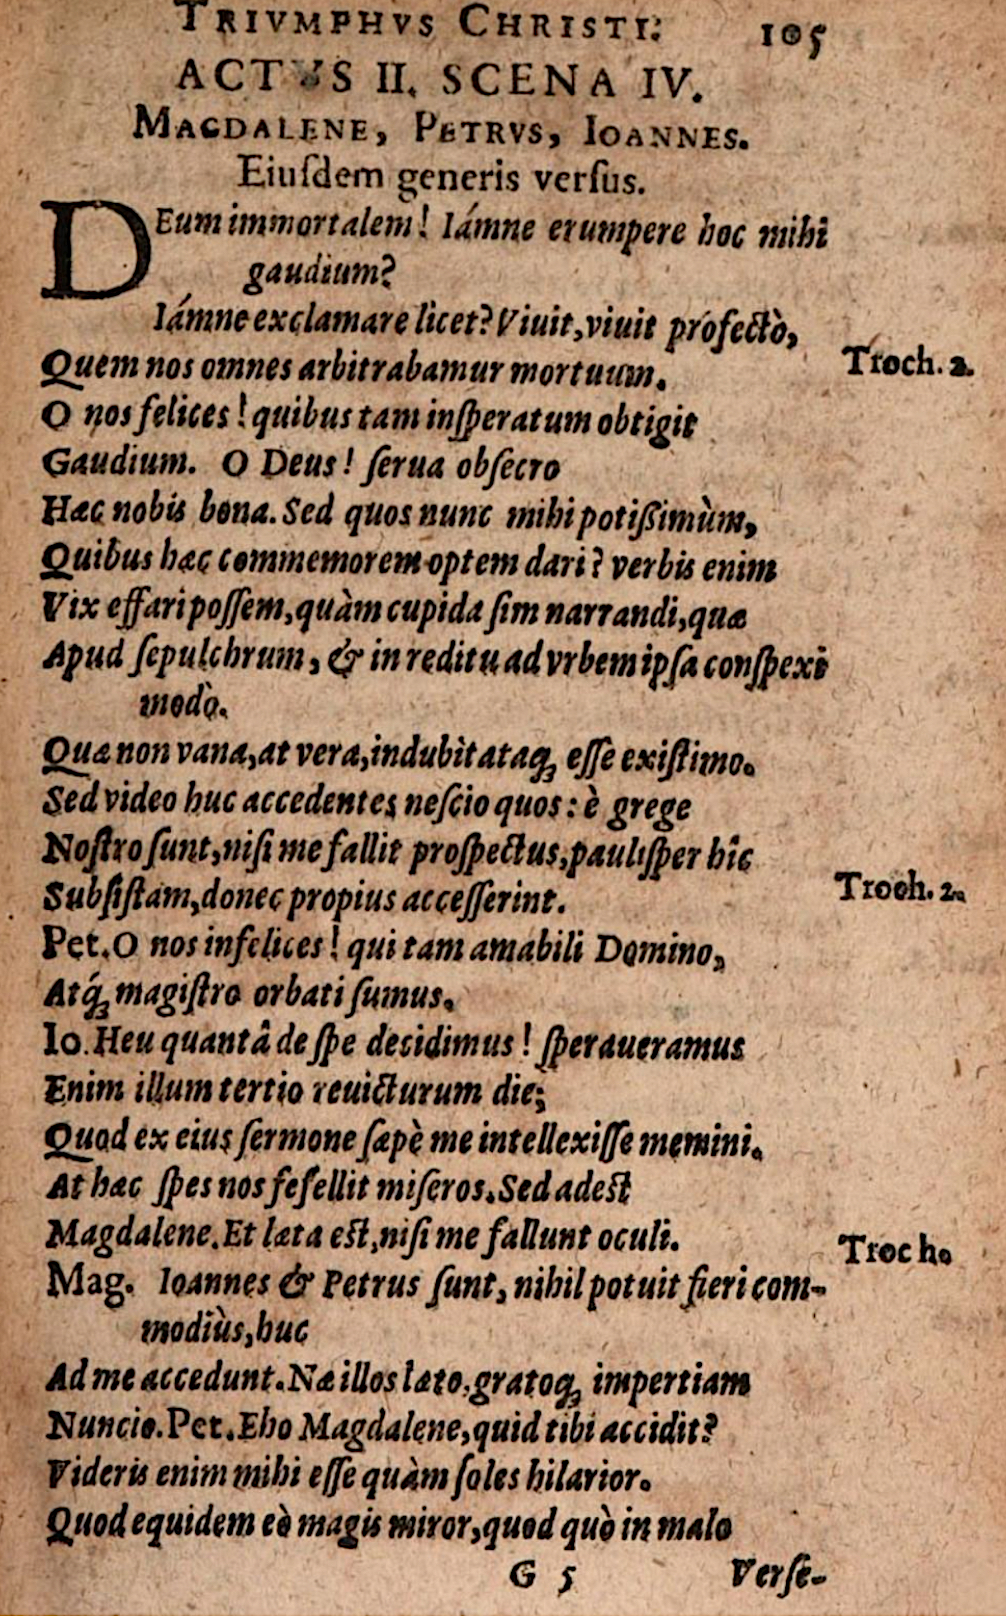 TRIVMPHVS CHRISTI. 105
ACTVS II. SCENA IV.
MAGDALENE, PETRVS, IOANNES.
Eiuſdem generis verſus.
DEum immortalem! Iámne erumpere hoc mihi
gaudium?
Iámne exclamare licet? Viuit, viuit profectò,
Quem nos omnes arbitrabamur mortuum. Troch. 2.
O nos felices! quibus tam inſperatum obtigit
Gaudium. O Deus! ſerua obſecro
Hæc nobis bona. Sed quos nunc mihi potißimùm,
Quibus hæc commemorem optem dari? verbis enim
Vix effari poſſem, quàm cupida ſim narrandi, quæ
Apud ſepulchrum, & in reditu ad vrbem ipſa conſpexi
modò.
Quæ non vana, at vera, indubitataq́; eſſe exiſtimo.
Sed video huc accedentes neſcio quos: è grege
Noſtro ſunt, niſi me fallit proſpectus, pauliſper hîc
Subſiſtam, donec propius acceſſerint. Troch. 2.
Pet. O nos infelices! qui tam amabili Domino,
Atq́; magiſtro orbati ſumus.
Io. Heu quantâ de ſpe decidimus! ſperaueramus
Enim illum tertio reuicturum die;
Quod ex eius ſermone ſæpè me intellexiſſe memini.
At hæc ſpes nos fefellit miſeros. Sed adeſt
Magdalene. Et læta eſt, niſi me fallunt oculi. Troch.
Mag. Ioannes & Petrus ſunt, nihil potuit fieri com-
modiùs, huc
Ad me accedunt. Næ illos læto, gratoq́; impertiam
Nuncio. Pet. Eho Magdalene, quid tibi accidit?
Videris enim mihi eſſe quàm ſoles hilarior.
Quod equidem eò magis miror, quod quò in malo
G 5 Verſe-